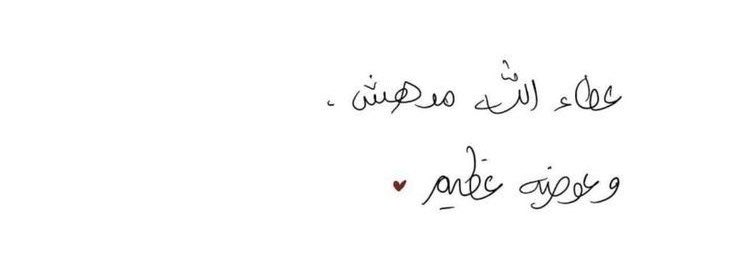 عطاء الله مدهش .
وعوضه عظيم ♥